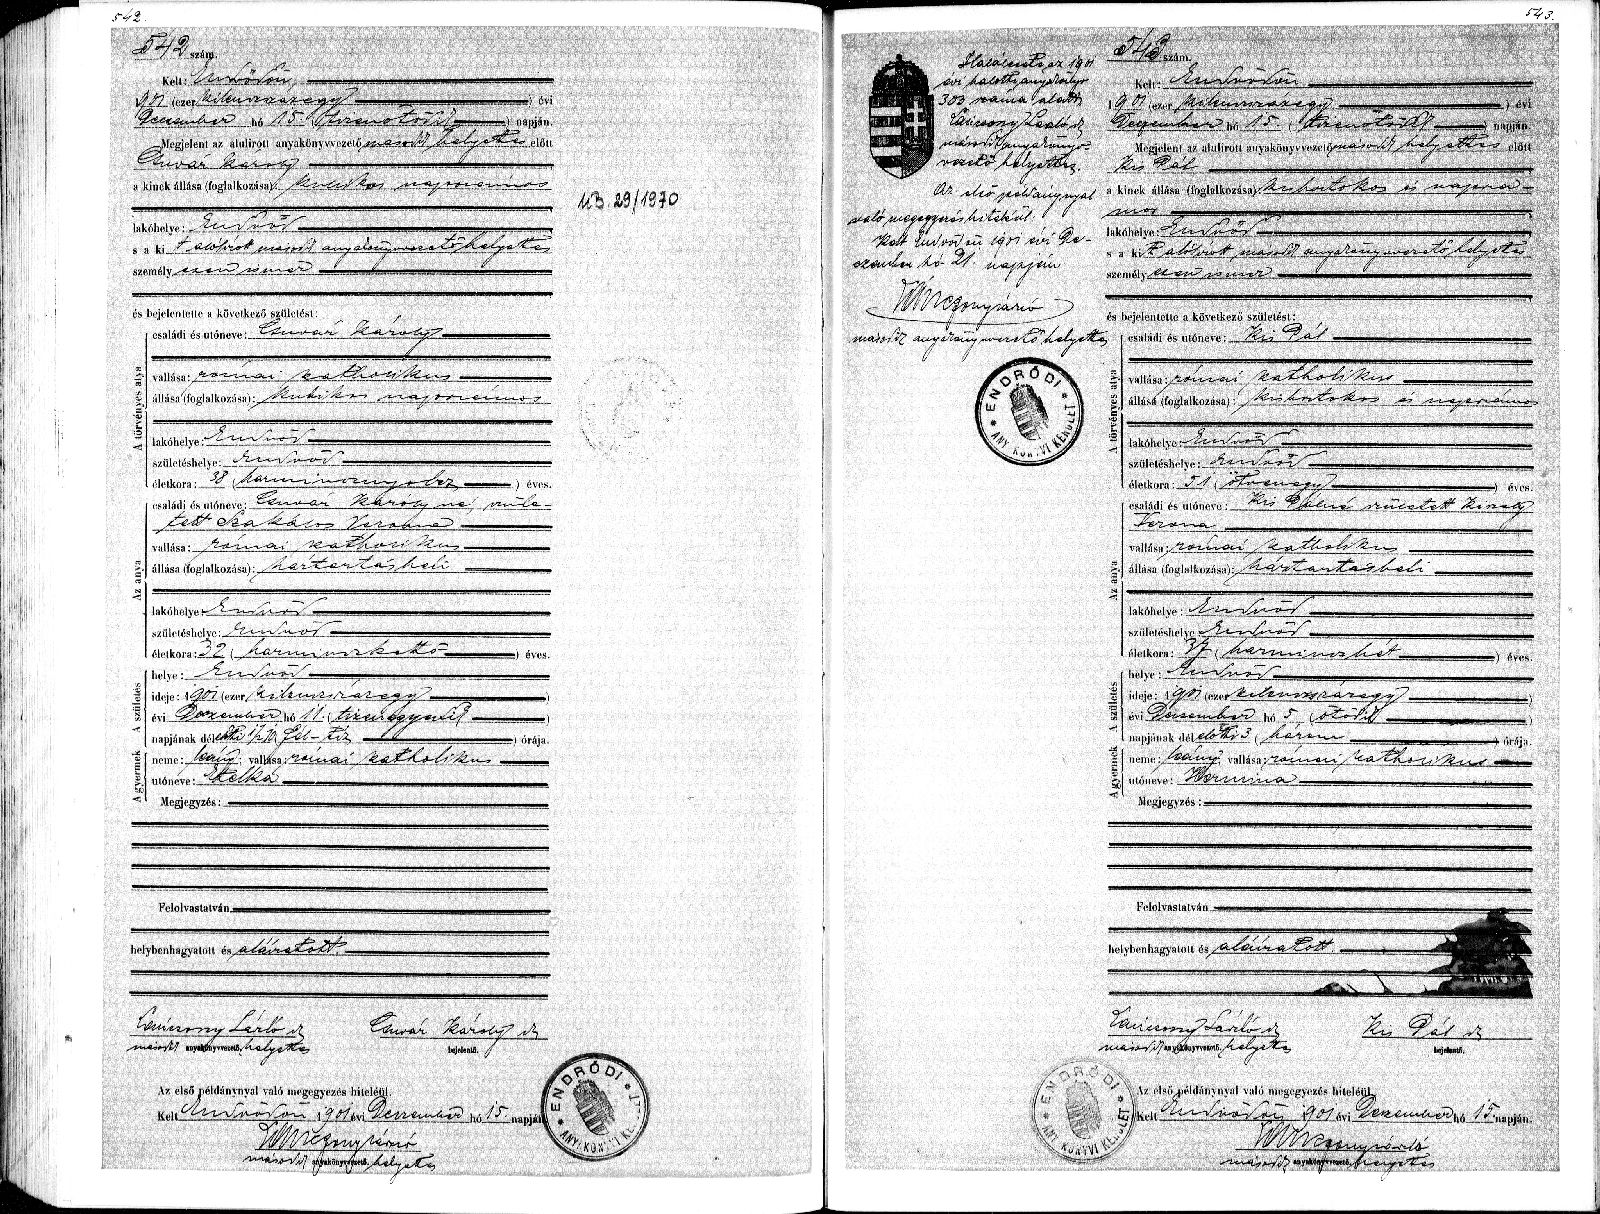 542.
542 szám.
Kelt: Endrődön,
1901 (ezer kilenczszázegy) évi
Deczember hó 15. (tizenötödik) napján.
Megjelent az alulirott anyakönyvvezető másodk helyettes előtt
Csuvár Károly
a kinek állása (foglalkozása): kubikos napszámos
lakóhelye: Endrőd
s a ki t alólirott másodk anyakönyvvezető helyettes
személyesen ismer
és bejelentette a következő születést:
A törvényes atya
családi és utóneve: Csuvár Károly
vallása: római katholikus
állása (foglalkozása): kubikos napszámos
lakóhelye: Endrőd
születéshelye: Endrőd
életkora: 38 (harmincznyolcz) éves.
Az anya
családi és utóneve: Csuvár Károlyné, szüle-
tett Szakálos Verona
vallása: római katholikus
állása (foglalkozása): háztartásbeli
lakóhelye: Endrőd
születéshelye: Endrőd
életkora: 32 (harminczkettő) éves.
A születés
helye: Endrőd
ideje: 1901 (ezer kilenczszázegy)
évi Deczember hó 11. (tizenegyedik)
napjának délelőtti 1/2 10 (fél-tíz) órája.
A gyermek
neme: leány; vallása: római katholikus
utóneve: Etelka
Megjegyzés:
Felolvastatván,
helybenhagyatott és aláíratott.
Lavicsony László dk
másodk anyakönyvvezető. helyettes
Csuvár Károly dk
bejelentő.
Az első példánynyal való megegyezés hiteléül.
Kelt Endrődön 1901 évi Deczember hó 15. napján
másodk anyakönyvvezető. helyettes
ENDRŐDI
ANYAKÖNYVI KERÜLET
MB. 29/1970
543.
Halálesete az 1901
évi halotti anyakönyv
303 száma alatt
László dk
másodk anyaköny-
vvezető helyettes.
Az első példánynyal
való megegyezés hiteléül.
Kelt Endrődön 1901 évi De-
czember hó 21. napján
másodk anyakönyvvezető helyettes
ENDRŐDI
ANYAKÖNYVI KERÜLET
543 szám.
Kelt: Endrődön
1901 (ezer kilenczszázegy) évi
Deczember hó 15. (tizenötödik) napján.
Megjelent az alulirott anyakönyvvezető másodk helyettes előtt
Kis Pál
a kinek állása (foglalkozása): kisbirtokos és napszá-
mos
lakóhelye: Endrőd
s a ki t alólirott másodk anyakönyvvezető helyettes
személyesen ismer
és bejelentette a következő születést:
A törvényes atya
családi és utóneve: Kis Pál
vallása: római katholikus
állása (foglalkozása): kisbirtokos és napszámos
lakóhelye: Endrőd
születéshelye: Endrőd
életkora: 51 (ötvenegy) éves.
Az anya
családi és utóneve: Kis Pálné született Király
Verona
vallása: római katholikus
állása (foglalkozása): háztartásbeli
lakóhelye: Endrőd
születéshelye: Endrőd
életkora: 37 (harminczhét) éves.
A születés
helye: Endrőd
ideje: 1901 (ezer kilenczszázegy)
évi Deczember hó 5. (ötödik)
napjának délelőtti 3 (három) órája.
A gyermek
neme: leány; vallása: római katholikus
utóneve: Hermina
Megjegyzés:
Felolvastatván
helybenhagyatott és aláíratott.
Lavicsony László dk
másodk anyakönyvvezető. helyettes
Kis Pál dk
bejelentő.
Az első példánynyal való megegyezés hiteléül.
Kelt Endrődön 1901 évi Deczember hó 15 napján.
másodk anyakönyvvezető. helyettes
ENDRŐDI
ANYAKÖNYVI KERÜLET